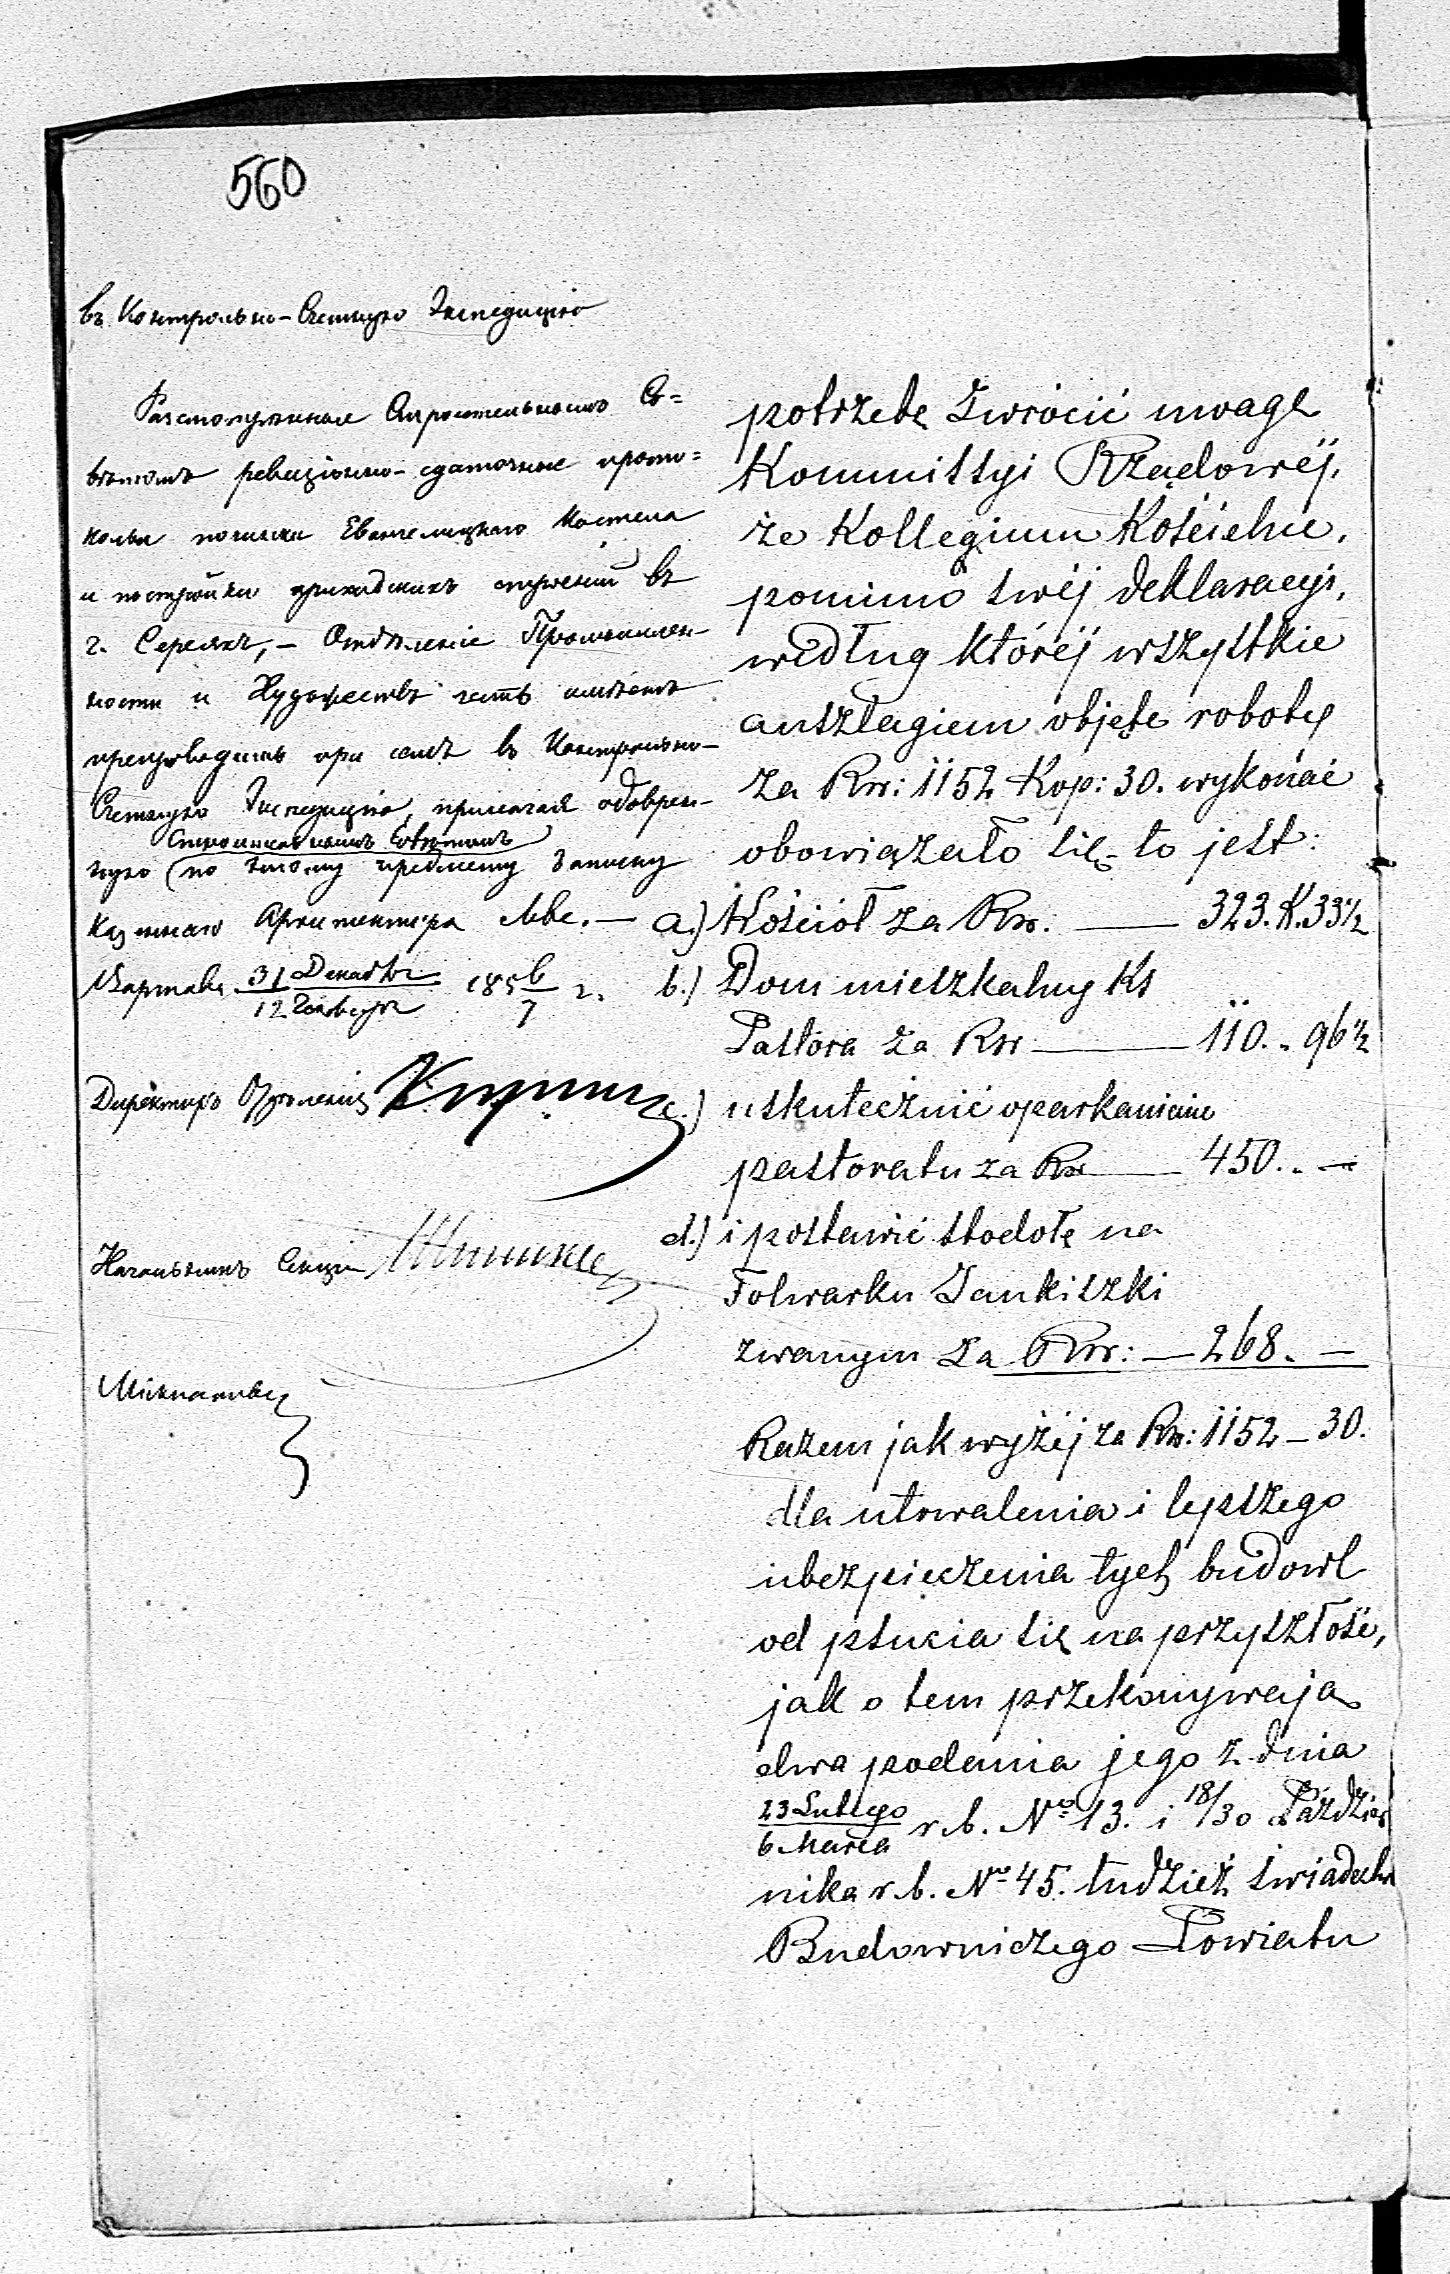 560
въ Контрольно-Счетную Экспедицію
Разсмотрѣнные Строительнымъ Со=
вѣтомъ ревизіонно-сдаточные прото=
колы починки Евангелицкаго Костела
и постройки приходскихъ строеній въ
г. Сереяхъ, – Отдѣленіе Промышлен-
ности и Художествъ честь имѣетъ
препроводить при семъ въ Контрольно-
Счетную Экспедицію, прилагая одобрен-
Строительнымъ Совѣтомъ
ную (по этому предмету записку
казеннаго Архитектора Лве. –
Варшава 31 Декабря / 12 Января 1856/7 г.
Директоръ Отдѣленія
Начальникъ Секціи
potrzebę zwrócić uwagę
Kommissyi Rządowéj,
że Kollegium Kościelne,
pomimo swéj deklaracyi,
według któréj wszystkie
anszlagiem objęte roboty
za Rsr: 1152 Kop: 30. wykonać
obowiązało się – to jest:
a.) Kościół za Rsr. — 323. K. 33½
b.) Dom mieszkalny Ks
Pastora za Rsr — 110. „ 96½
c.) uskutecznić oparkanienie
pastoratu za Rsr — 450. „ —
d.) i postawić stodołę na
Folwarku Jankiszki
zwanym za Rsr: — 268. —
Razem jak wyżéj za Rsr: 1152 – 30.
dla utrwalenia i lepszego
ubezpieczenia tych budowl
od psucia się na przyszłość,
jak o tem przekonywają
dwa podania jego z dnia
23 Lutego / 6 Marca r. b. No 13. i 18/30 Paździer
nika r. b. No 45. tudzież świadectw
Budowniczego Powiatu